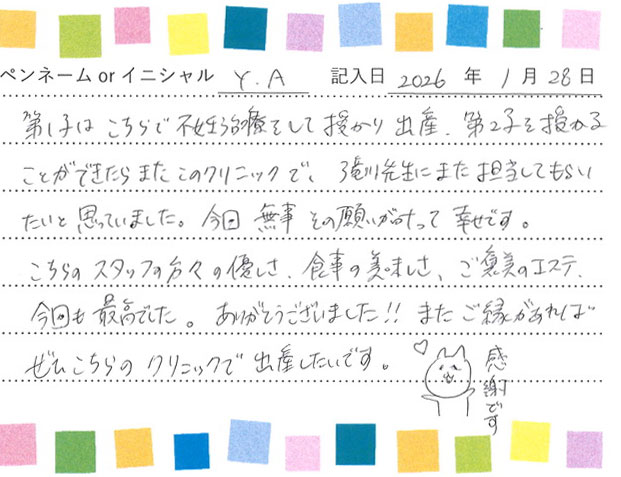 ペンネーム or イニシャル Y.A 記入日 2026 年 1 月 28 日
第1子はこちらで不妊治療をして授かり出産、第2子を授かる
ことができたらまたこのクリニックで、滝川先生にまた担当してもらい
たいと思っていました。今回無事その願いが叶って幸せです。
こちらのスタッフの方々の優しさ、食事の美味しさ、ご褒美のエステ、
今回も最高でした。ありがとうございました!! またご縁があれば
ぜひこちらのクリニックで出産したいです。
感謝です